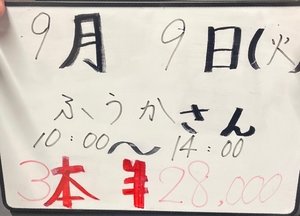 9月 9日(火
ふうかさん
10:00〜14:00
3本 半 28,000